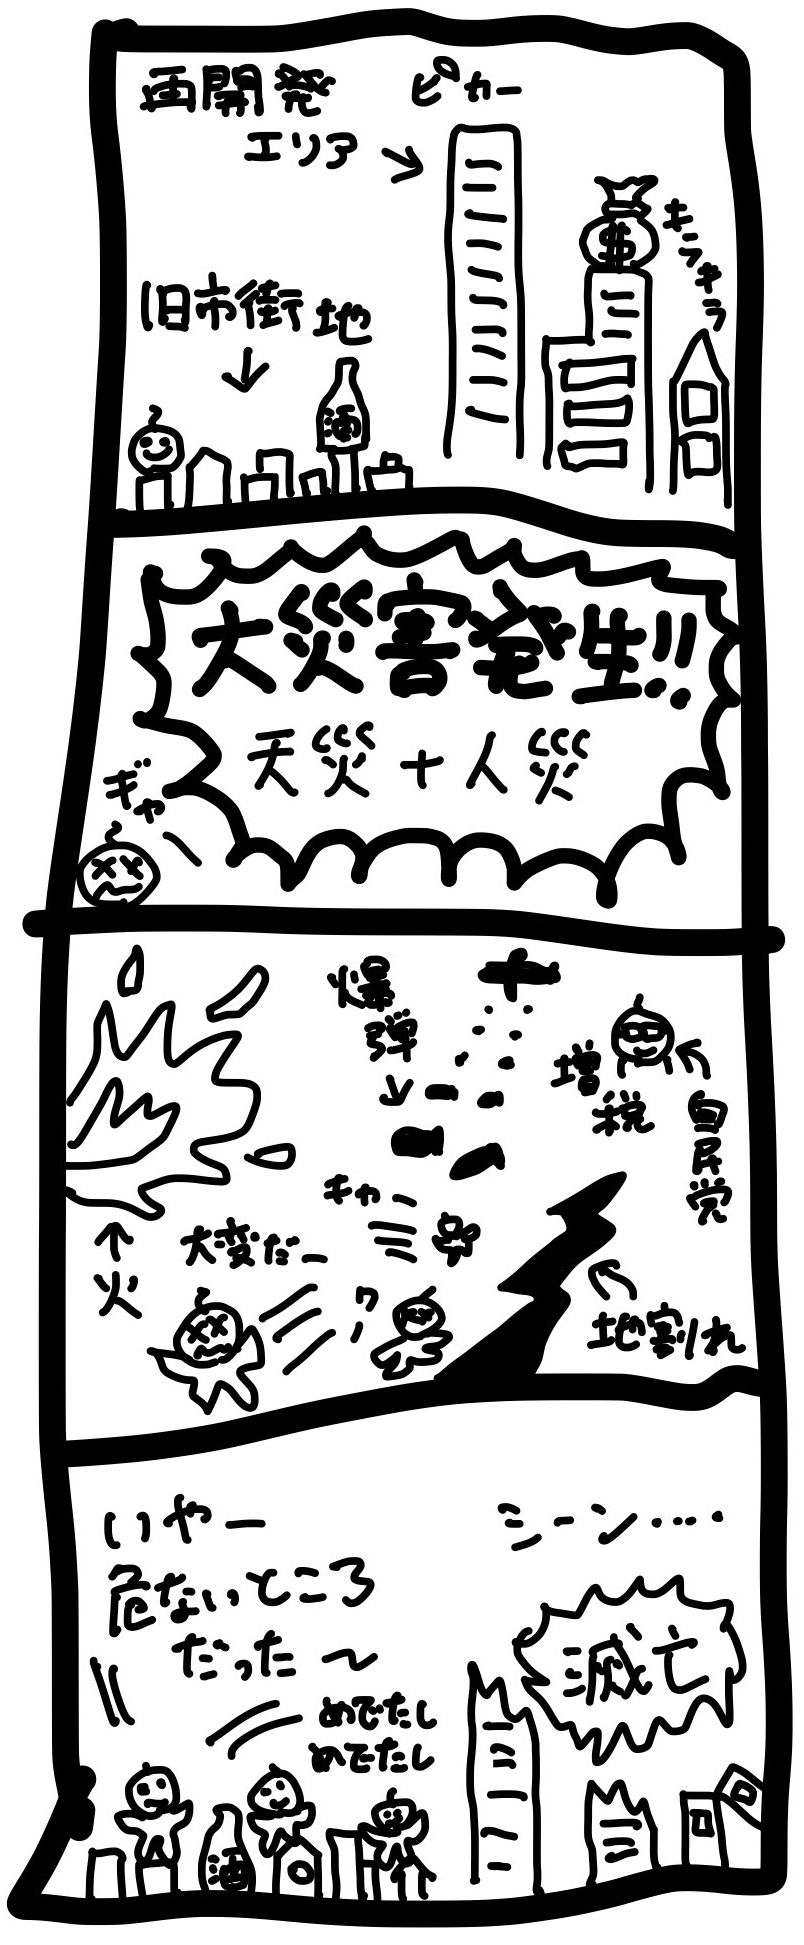 再開発
エリア
ピカー
$
キラキラ
旧市街地
酒
大災害発生!!
天災+人災
ギャ
爆弾
増税
自民党
キャー
大変だー
火
ワー
地割れ
いやー
危ないところ
だった〜
めでたし
めでたし
シーン・・・・
滅亡
酒